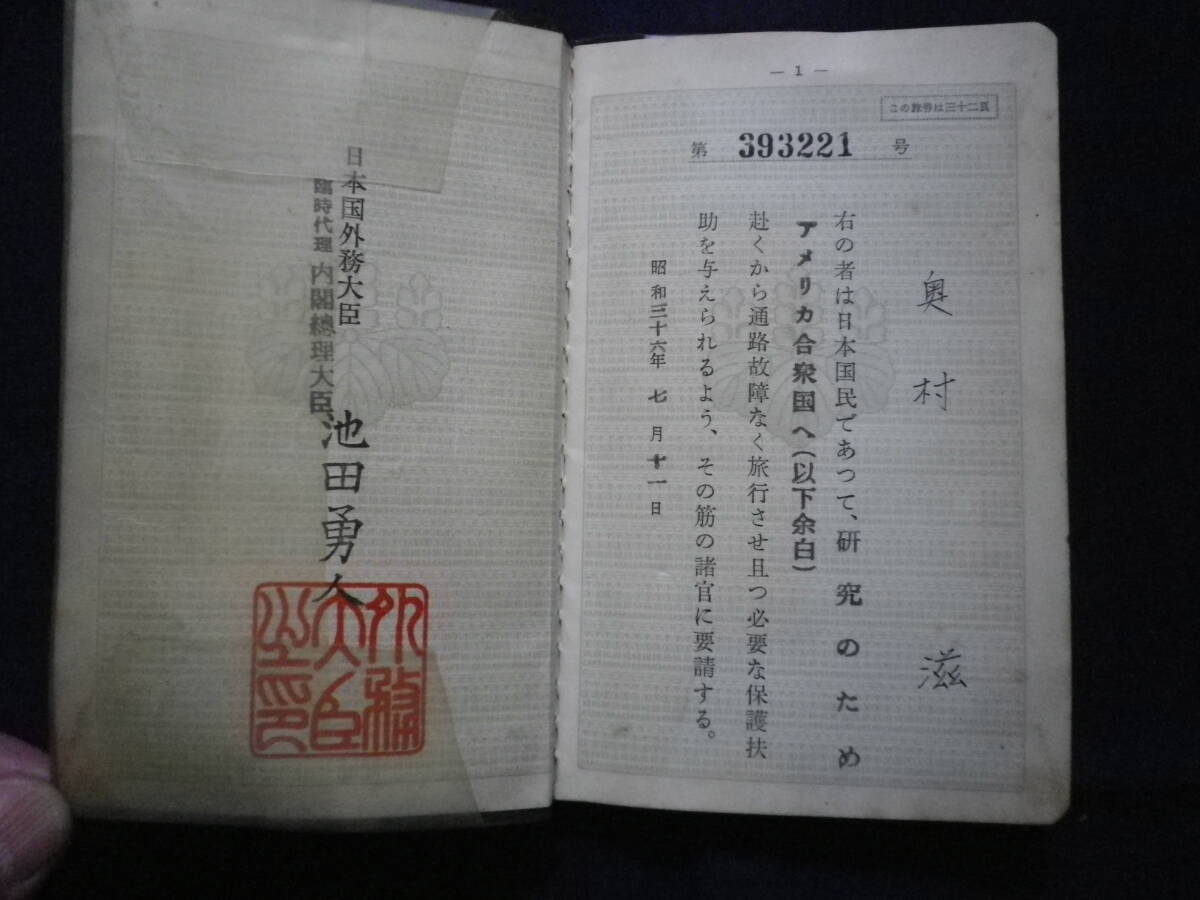 — 1 —
この旅券は三十二頁
第 393221 号
奥村 滋
右の者は日本国民であつて、研究のため
アメリカ合衆国へ(以下余白)
赴くから通路故障なく旅行させ且つ必要な保護扶
助を与えられるよう、その筋の諸官に要請する。
昭和三十六年 七 月 十一 日
日本国外務大臣
臨時代理 内閣總理大臣
池田勇人
外務大臣之印